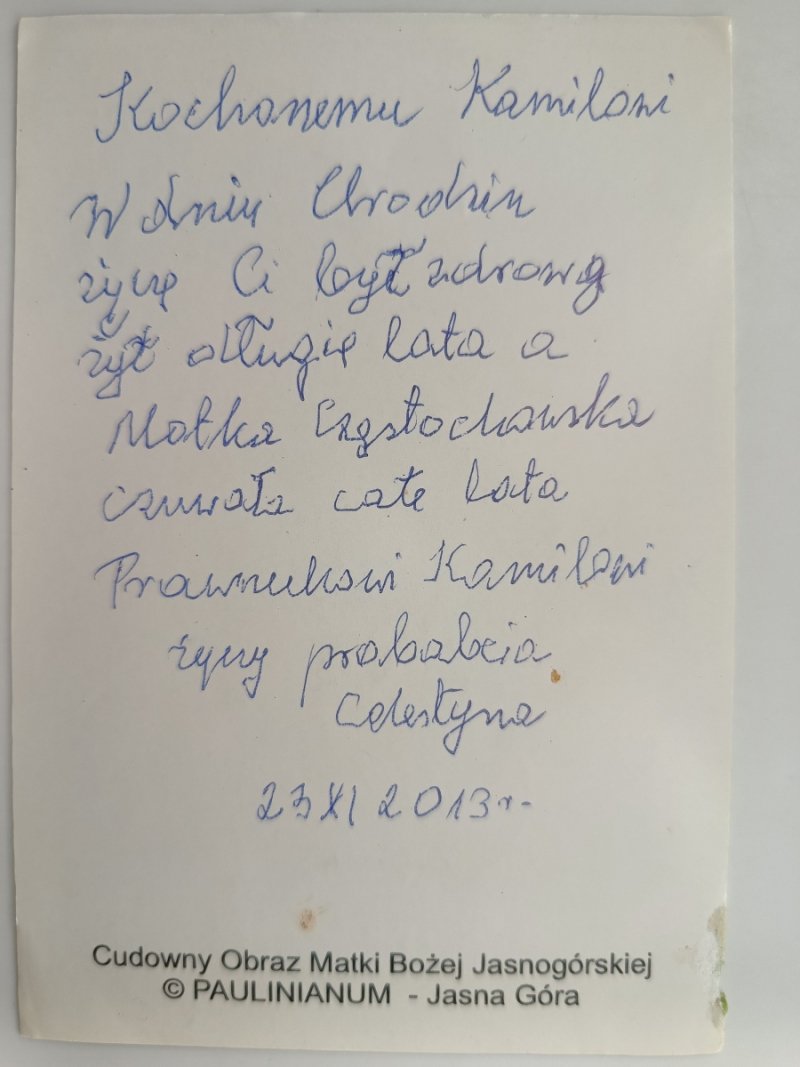 Kochanemu Kamilowi
W dniu Urodzin
życzę Ci być zdrową
żyć długie lata a
Matka Częstochowska
czuwała całe lata
Prawnukowi Kamilowi
życzy prababcia
Celestyna
23 XI 2013 r.
Cudowny Obraz Matki Bożej Jasnogórskiej
© PAULINIANUM - Jasna Góra